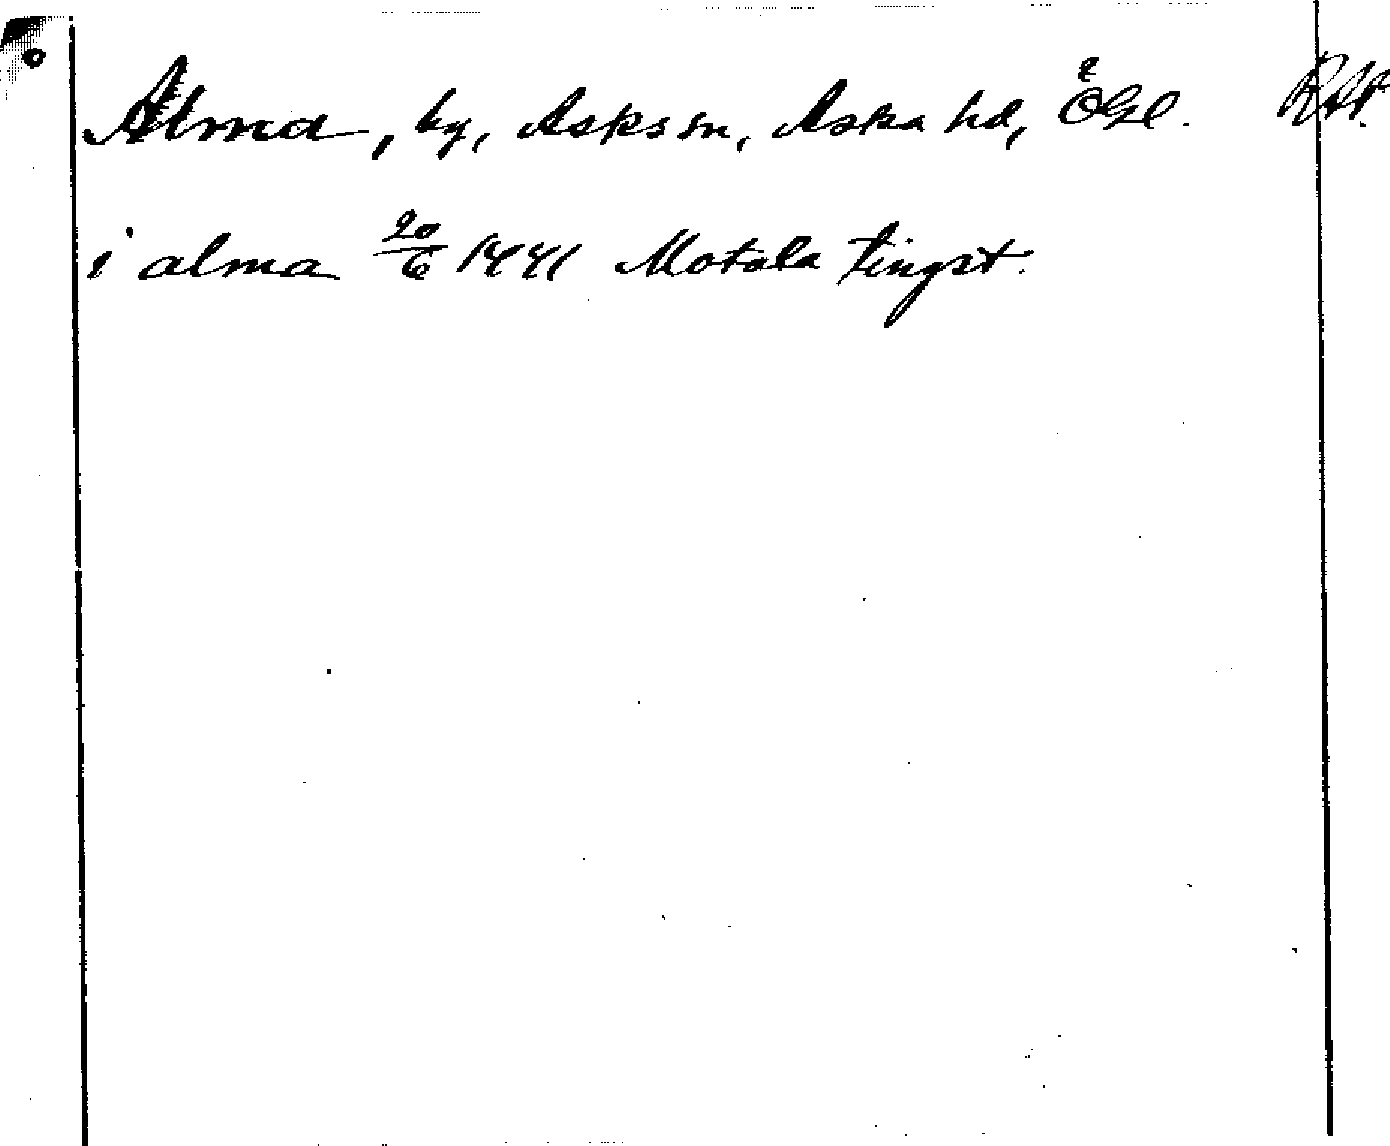 Alma, by, Asks sn, Aska hd, Ögl. RAP.
i alma 20/6 1441 Motala tingst.